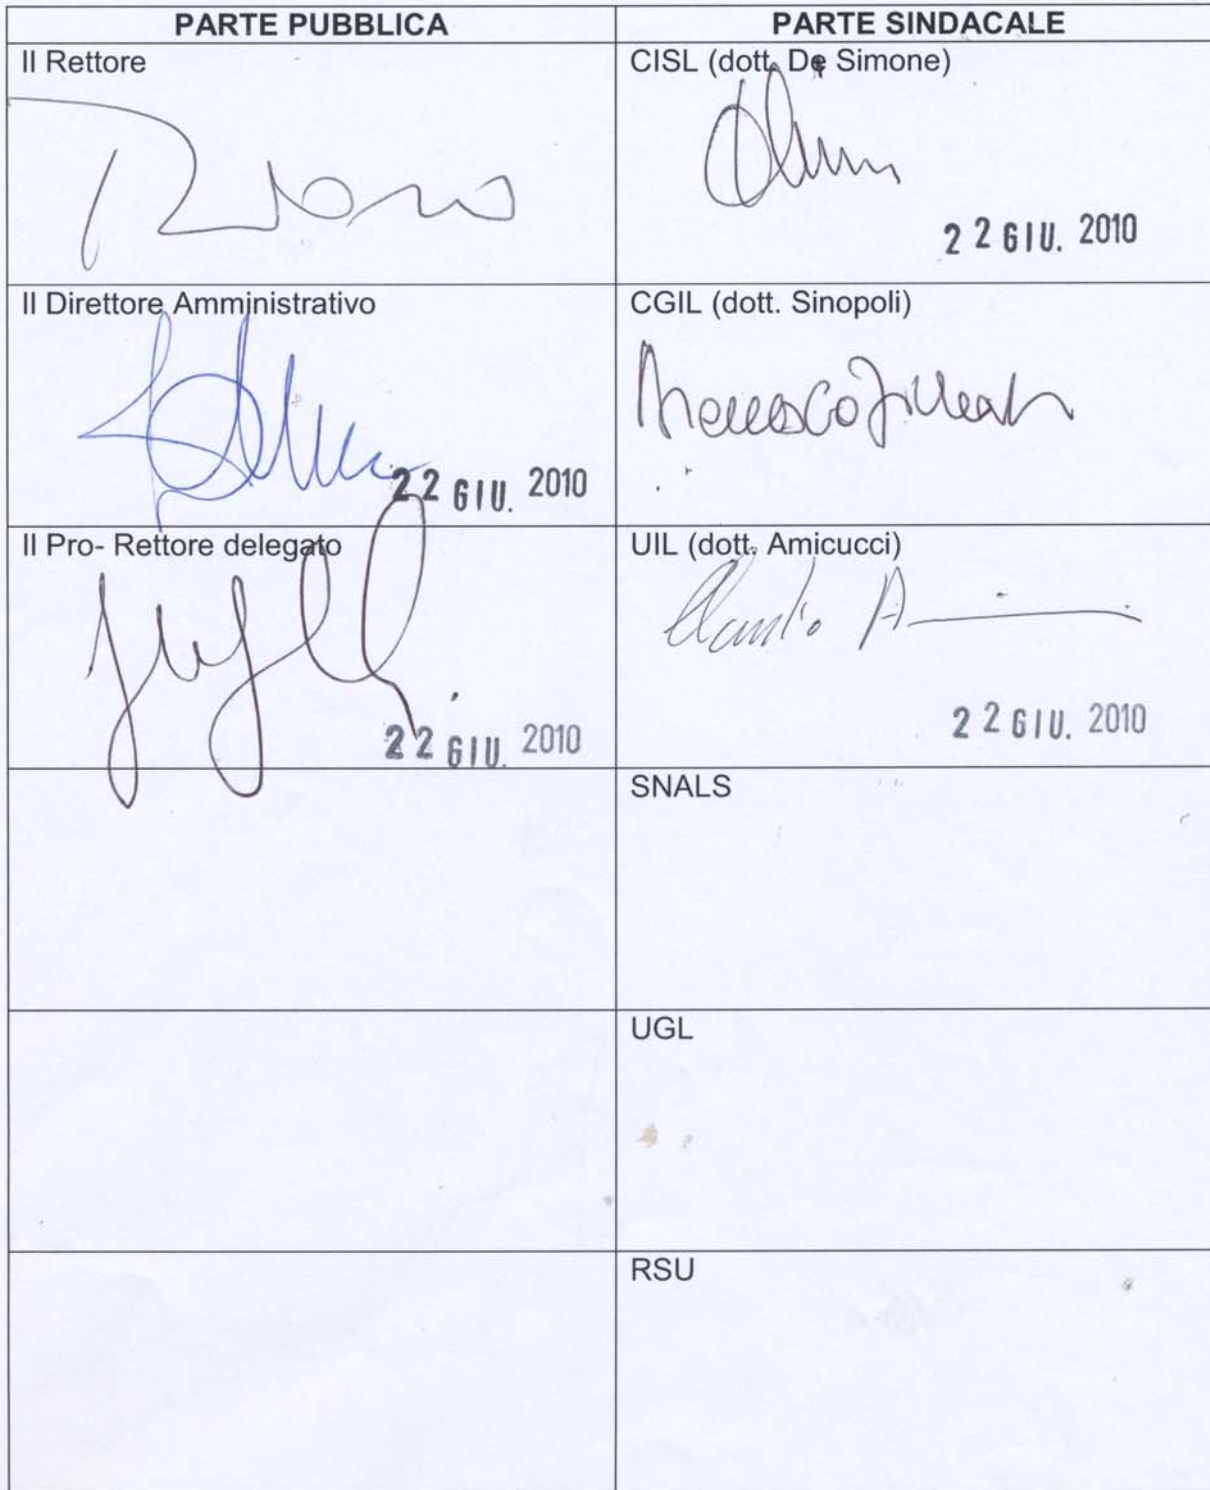 PARTE PUBBLICA
PARTE SINDACALE
Il Rettore
CISL (dott. De Simone)
22 GIU. 2010
Il Direttore Amministrativo
22 GIU. 2010
CGIL (dott. Sinopoli)
Il Pro- Rettore delegato
22 GIU. 2010
UIL (dott. Amicucci)
Claudio A
22 GIU. 2010
SNALS
UGL
RSU